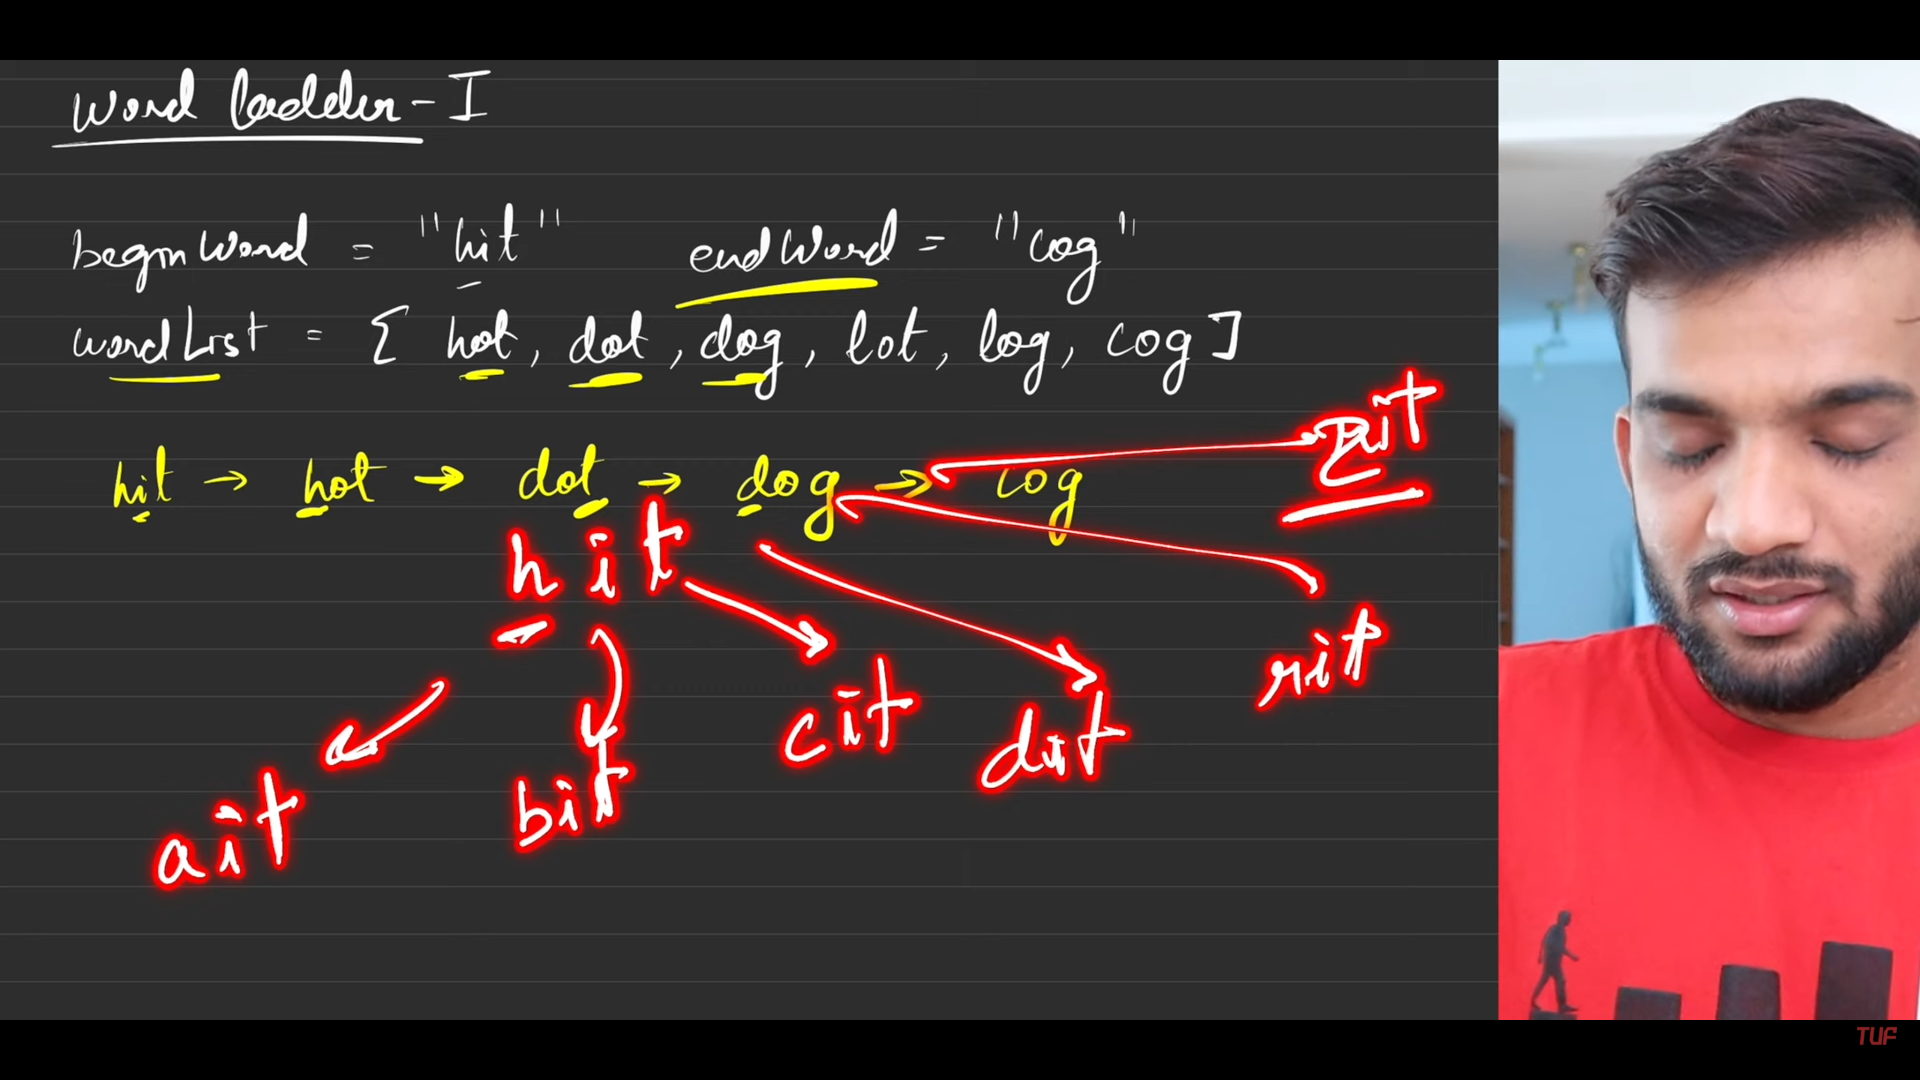 Word Ladder-I
beginWord = "hit" endWord = "cog"
wordList = { hot, dot, dog, lot, log, cog ]
hit → hot → dot → dog → cog
zit
hit
rit
cit
dit
bit
ait
TUF